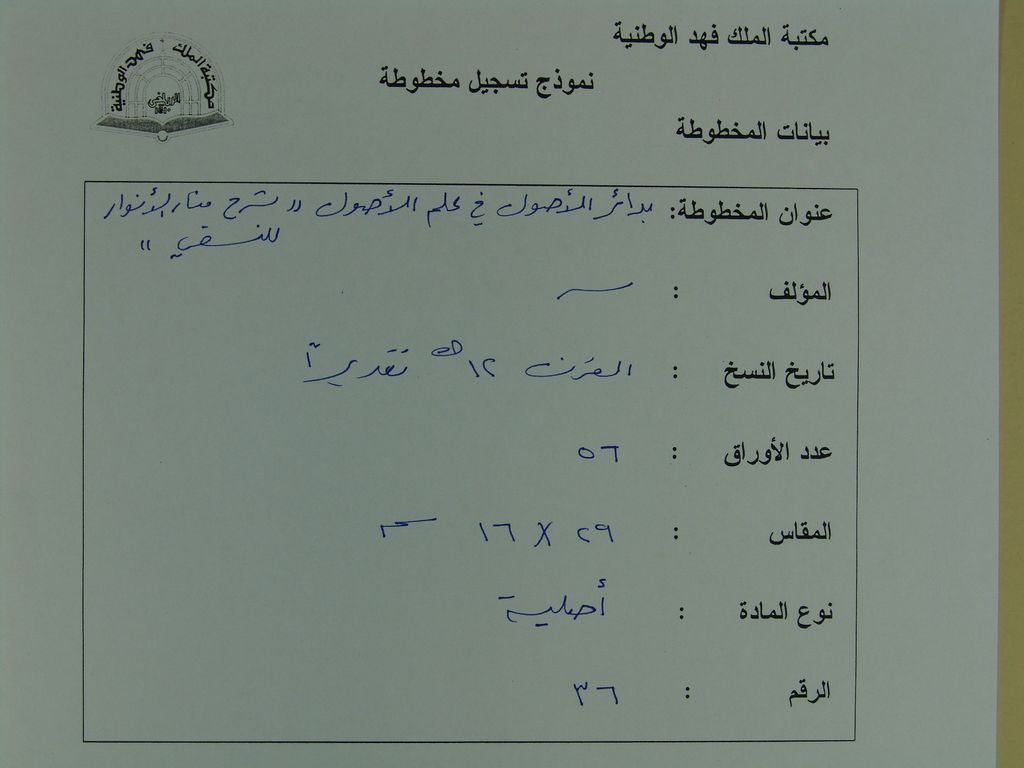 مكتبة الملك فهد الوطنية
مكتبة الملك فهد الوطنية
الرياض
نموذج تسجيل مخطوطة
بيانات المخطوطة
عنوان المخطوطة: بدائر الأصول في علم الأصول "شرح منار الأنوار
للنسفي"
المؤلف :
تاريخ النسخ : القرن ١٢هـ تقديراً
عدد الأوراق : ٥٦
المقاس : ٢٩ X ١٦ سم
نوع المادة : أصلية
الرقم : ٣٦